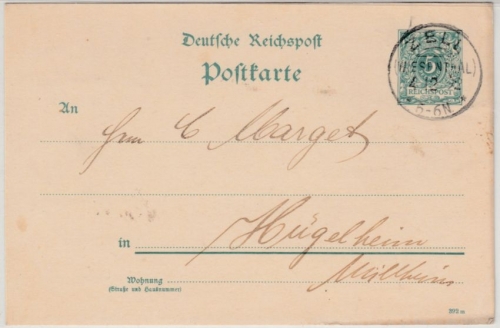 Deutsche Reichspost
Postkarte
ZELL
(WIESENTHAL)
5
REICHSPOST
5-6N
An
Hrn C Marget
in Hügelheim
Müllheim
Wohnung
(Straße und Hausnummer)